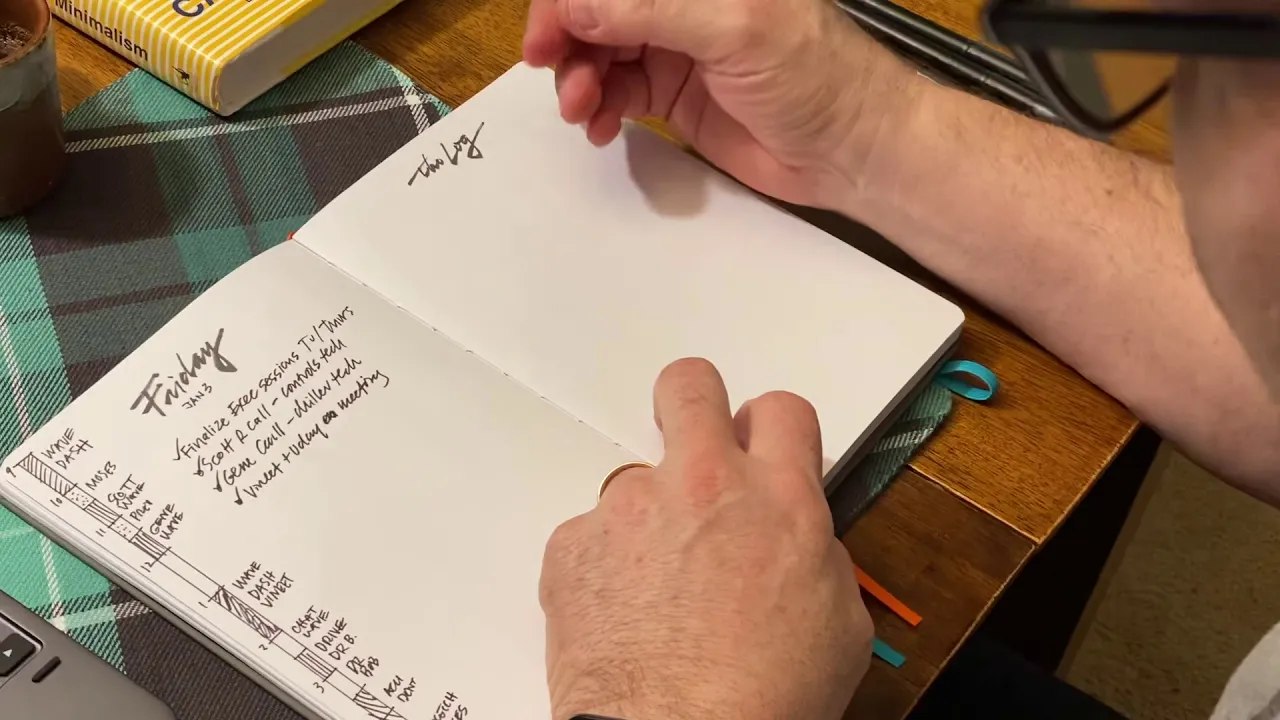 Minimalism
The Log
Friday
JAN 3
✓Finalize Exec sessions Tu/Thurs
✓Scott R Call - controls tech
✓Gene Call - chiller tech
✓Vineet + Uday meeting
9
WAVE
DASH
10
MOSES
SCOTT
WAVE
11
GENE
WAVE
12
1
WAVE
DASH
VINEET
2
CHAT
WAVE
DRIVE
DR. B.
3